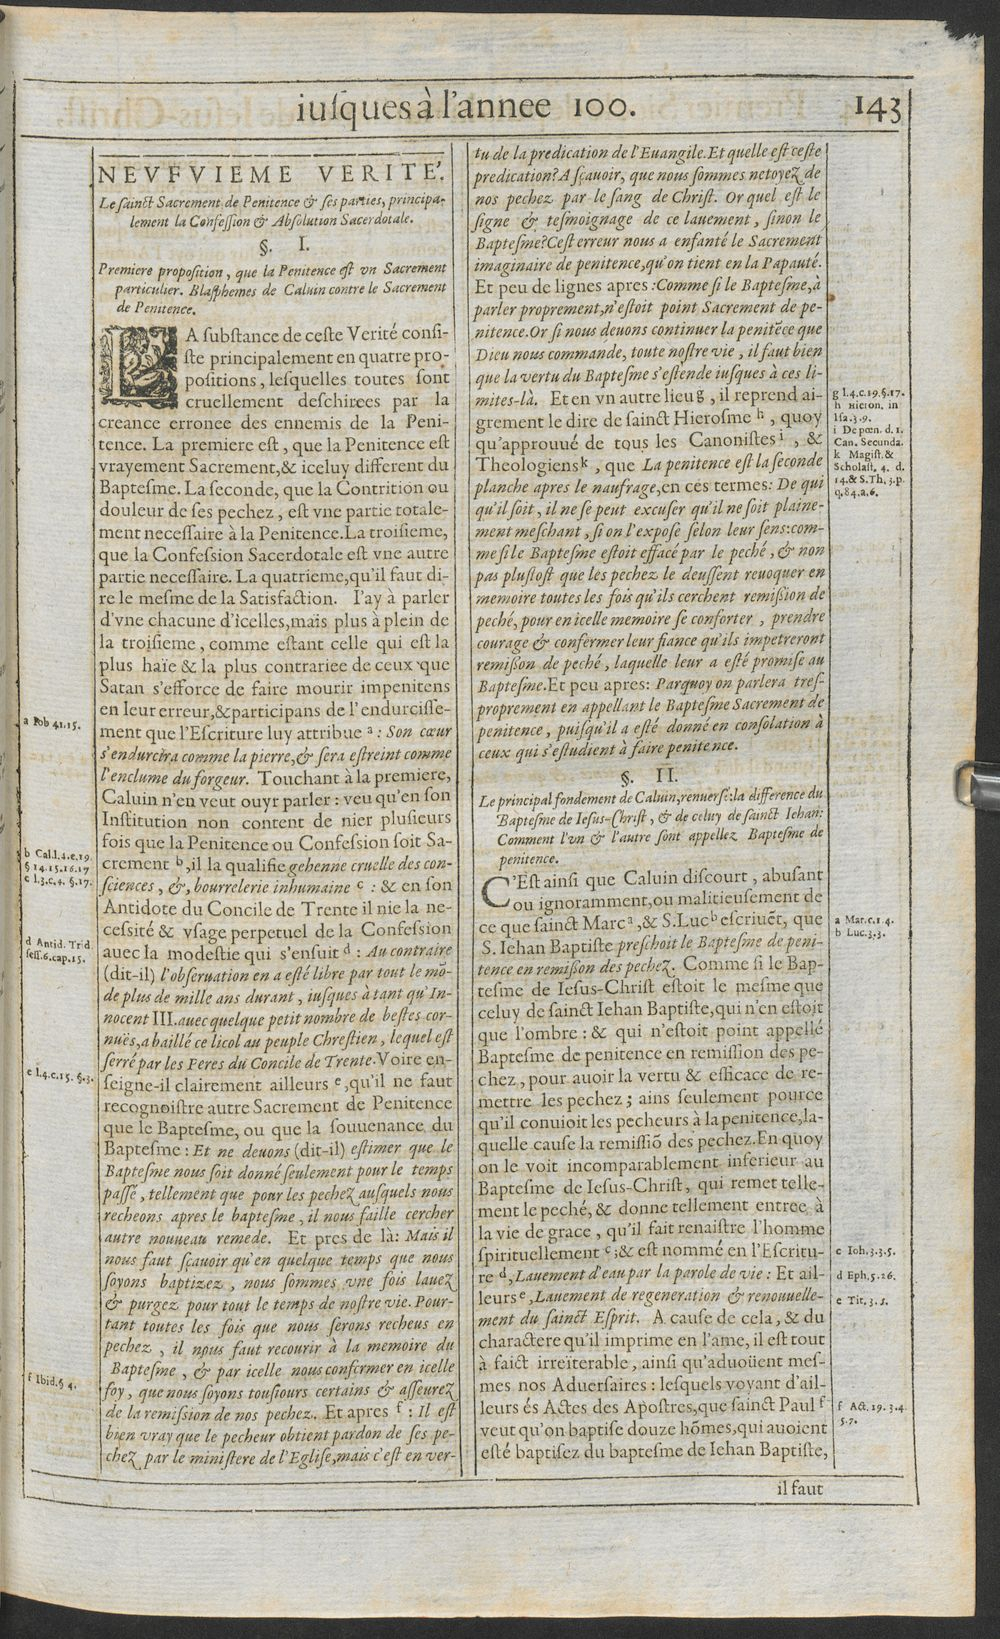 iuſques à l'annee 100.
143
NEVFVIEME VERITE'.
Le ſainct Sacrement de Penitence & ſes parties, principa-
lement la Confeſſion & Abſolution Sacerdotale.
§. I.
Premiere propoſition, que la Penitence eſt vn Sacrement
particulier. Blaſphemes de Caluin contre le Sacrement
de Penitence.
LA ſubſtance de ceſte Verité conſi-
ſte principalement en quatre pro-
poſitions, leſquelles toutes ſont
cruellement deſchirees par la
creance erronee des ennemis de la Peni-
tence. La premiere eſt, que la Penitence eſt
vrayement Sacrement,& iceluy different du
Bapteſme. La ſeconde, que la Contrition ou
douleur de ſes pechez, eſt vne partie totale-
ment neceſſaire à la Penitence.La troiſieme,
que la Confeſsion Sacerdotale eſt vne autre
partie neceſſaire. La quatrieme,qu'il faut di-
re le meſme de la Satisfaction. I'ay à parler
d'vne chacune d'icelles,mais plus à plein de
la troiſieme, comme eſtant celle qui eſt la
plus haïe & la plus contrariee de ceux que
Satan s'efforce de faire mourir impenitens
en leur erreur,&participans de l'endurciſſe-
ment que l'Eſcriture luy attribue a : Son cœur
s'endurcira comme la pierre,& ſera eſtreint comme
l'enclume du forgeur. Touchant à la premiere,
Caluin n'en veut ouyr parler : veu qu'en ſon
Inſtitution non content de nier pluſieurs
fois que la Penitence ou Confeſsion ſoit Sa-
crement b,il la qualifie gehenne cruelle des con-
ſciences, &, bourrelerie inhumaine c : & en ſon
Antidote du Concile de Trente il nie la ne-
ceſsité & vſage perpetuel de la Confeſsion
auec la modeſtie qui s'enſuit d : Au contraire
(dit-il) l'obſeruation en a eſté libre par tout le mō-
de plus de mille ans durant, iuſques à tant qu'In-
nocent III.auec quelque petit nombre de beſtes cor-
nues,a baillé ce licol au peuple Chreſtien, lequel eſt
ſerré par les Peres du Concile de Trente.Voire en-
ſeigne-il clairement ailleurs e,qu'il ne faut
recognoiſtre autre Sacrement de Penitence
que le Bapteſme, ou que la ſouuenance du
Bapteſme : Et ne deuons (dit-il) eſtimer que le
Bapteſme nous ſoit donné ſeulement pour le temps
paſſé, tellement que pour les pechez auſquels nous
recheons apres le bapteſme, il nous faille cercher
autre nouueau remede. Et pres de là: Mais il
nous faut ſçauoir qu'en quelque temps que nous
ſoyons baptizez, nous ſommes vne fois lauez
& purgez pour tout le temps de noſtre vie. Pour-
tant toutes les fois que nous ſerons recheus en
pechez, il nous faut recourir à la memoire du
Bapteſme, & par icelle nous confermer en icelle
foy, que nous ſoyons touſiours certains & aſſeurez
de la remiſsion de nos pechez. Et apres f : Il eſt
bien vray que le pecheur obtient pardon de ſes pe-
chez par le miniſtere de l'Egliſe,mais c'eſt en ver-
a Iob 41.15.
b Cal.l.4.c.19.
§ 14.15.16.17
c l.3.c.4. §.17.
d Antid. Trid.
ſeſſ.6.cap.15.
e l.4.c.15. §.3.
f Ibid.§ 4.
tu de la predication de l'Euangile.Et quelle eſt ceſte
predication? A ſçauoir, que nous ſommes netoyez de
nos pechez par le ſang de Chriſt. Or quel eſt le
ſigne & teſmoignage de ce lauement, ſinon le
Bapteſme?Ceſt erreur nous a enfanté le Sacrement
imaginaire de penitence,qu'on tient en la Papauté.
Et peu de lignes apres :Comme ſi le Bapteſme,à
parler proprement,n'eſtoit point Sacrement de pe-
nitence.Or ſi nous deuons continuer la penitēce que
Dieu nous commande, toute noſtre vie, il faut bien
que la vertu du Bapteſme s'eſtende iuſques à ces li-
mites-là. Et en vn autre lieu g, il reprend ai-
grement le dire de ſainct Hieroſme h, quoy
qu'approuué de tous les Canoniſtes i, &
Theologiens k, que La penitence eſt la ſeconde
planche apres le naufrage,en ces termes: De qui
qu'il ſoit, il ne ſe peut excuſer qu'il ne ſoit plaine-
ment meſchant, ſi on l'expoſe ſelon leur ſens:com-
me ſi le Bapteſme eſtoit effacé par le peché, & non
pas pluſtoſt que les pechez le deuſſent reuoquer en
memoire toutes les fois qu'ils cerchent remiſsion de
peché, pour en icelle memoire ſe conforter, prendre
courage & confermer leur fiance qu'ils impetreront
remiſson de peché, laquelle leur a eſté promiſe au
Bapteſme.Et peu apres: Parquoy on parlera treſ-
proprement en appellant le Bapteſme Sacrement de
penitence, puiſqu'il a eſté donné en conſolation à
ceux qui s'eſtudient à faire penitence.
§. II.
Le principal fondement de Caluin,renuerſé:la difference du
Bapteſme de Ieſus-Chriſt, & de celuy de ſainct Iehan:
Comment l'vn & l'autre ſont appellez Bapteſme de
penitence.
C'Eſt ainſi que Caluin diſcourt, abuſant
ou ignoramment,ou malitieuſement de
ce que ſainct Marc a,& S.Luc b eſcriuēt, que
S. Iehan Baptiſte preſchoit le Bapteſme de peni-
tence en remiſson des pechez. Comme ſi le Bap-
teſme de Ieſus-Chriſt eſtoit le meſme que
celuy de ſainct Iehan Baptiſte,qui n'en eſtoit
que l'ombre : & qui n'eſtoit point appellé
Bapteſme de penitence en remiſſion des pe-
chez, pour auoir la vertu & efficace de re-
mettre les pechez ; ains ſeulement pource
qu'il conuioit les pecheurs à la penitence,la-
quelle cauſe la remiſſiō des pechez.En quoy
on le voit incomparablement inferieur au
Bapteſme de Ieſus-Chriſt, qui remet telle-
ment le peché, & donne tellement entree à
la vie de grace, qu'il fait renaiſtre l'homme
ſpirituellement c;& eſt nommé en l'Eſcritu-
re d, Lauement d'eau par la parole de vie : Et ail-
leurs e, Lauement de regeneration & renouuelle-
ment du ſainct Eſprit. A cauſe de cela, & du
charactere qu'il imprime en l'ame, il eſt tout
à faict irreïterable, ainſi qu'aduoüent meſ-
mes nos Aduerſaires : leſquels voyant d'ail-
leurs és Actes des Apoſtres,que ſainct Paul f
veut qu'on baptiſe douze hōmes,qui auoient
eſté baptiſez du bapteſme de Iehan Baptiſte,
g l.4.c.19.§.17.
h Hieron. in
Iſa.3.9.
i De pœn. d. 1.
Can. Secunda.
k Magiſt.&
Scholaſt. 4. d.
14.& S.Th. 3.p.
q.84.a.6.
a Mar.c.1 4.
b Luc.3.3.
c Ioh.3.3.5.
d Eph.5.26.
e Tit.3.5.
f Act.19.3.4.
5.7.
il faut